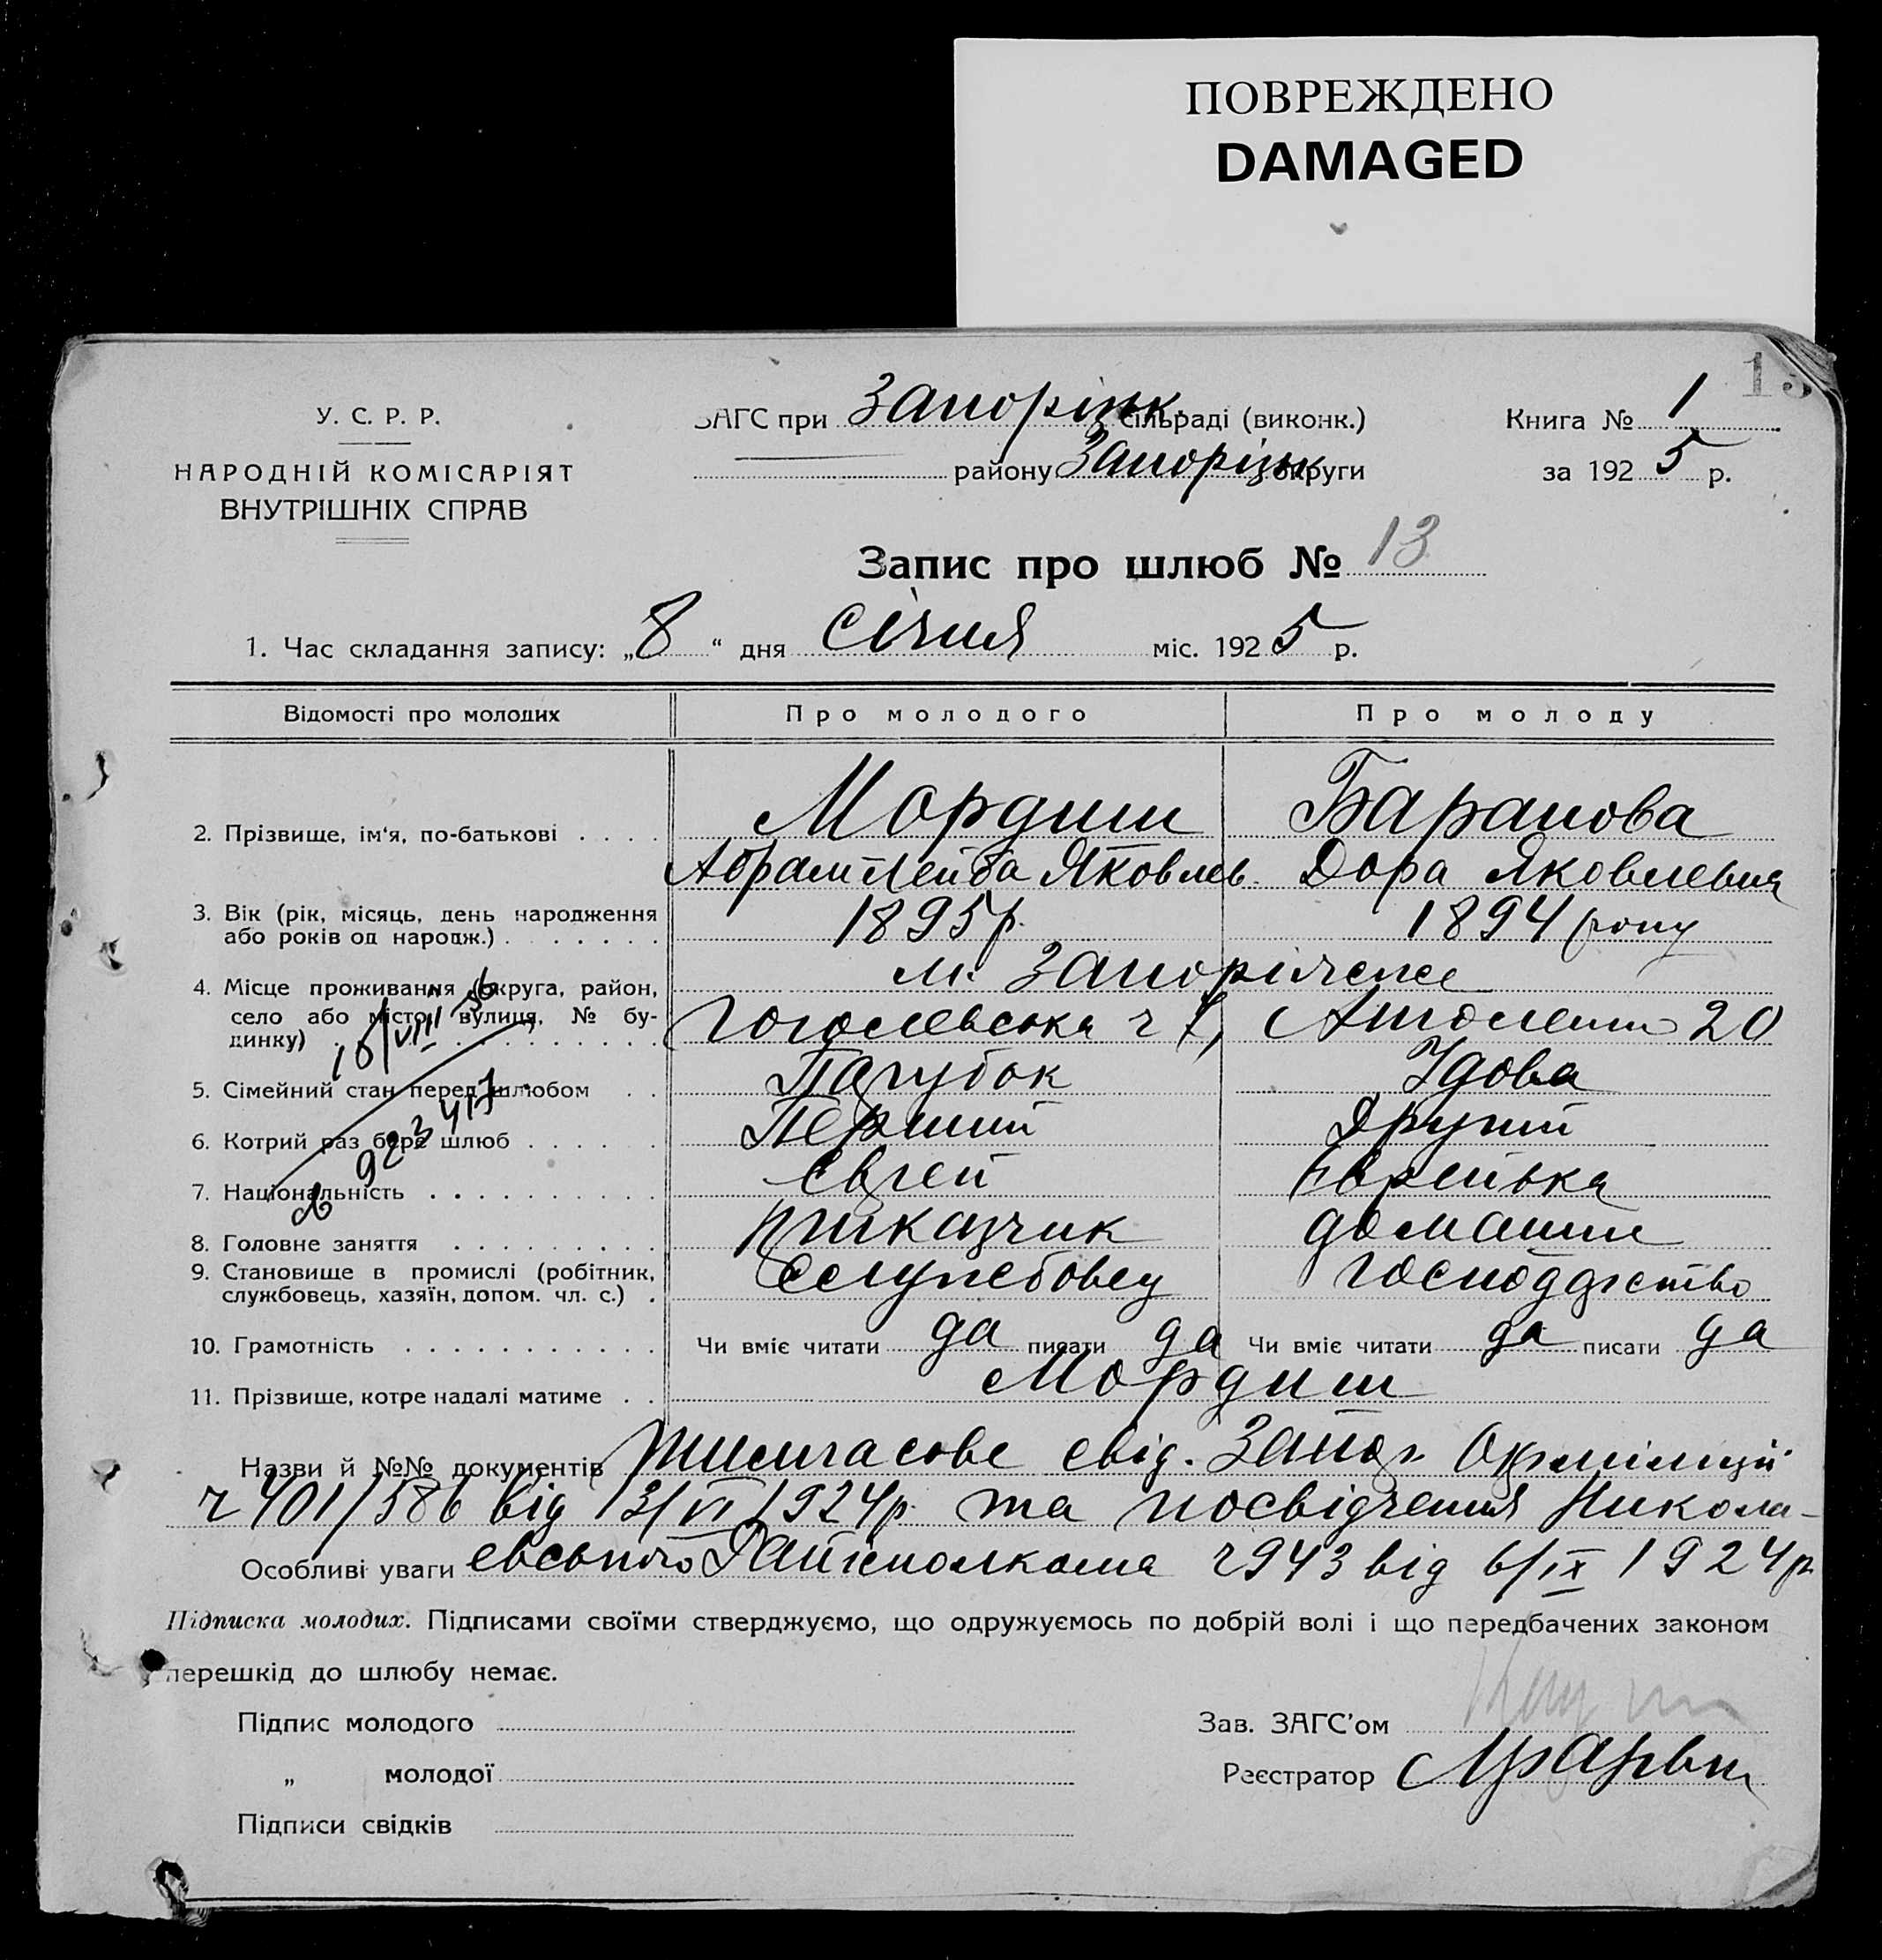 ПОВРЕЖДЕНО
DAMAGED
13
У. С. Р. Р.
НАРОДНІЙ КОМІСАРІЯТ
ВНУТРІШНІХ СПРАВ
ЗАГС при Запоріжк. сільраді (виконк.)
району Запорізьк округи
Книга № 1
за 1925 р.
Запис про шлюб № 13
1. Час складання запису: „8“ дня січня міс. 1925 р.
Відомості про молодих
Про молодого
Про молоду
2. Прізвище, ім‘я, по-батькові . . . . Мордиш Баранова
Абрам Лейба Яковлев. Дора Яковлевна
3. Вік (рік, місяць, день народження
або років од народж.) . . . . . . . 1895 р. 1894 року
4. Місце проживання (округа, район, м. Запоріжже
село або місто, вулиця, № бу-
динку) Гоголевська ч Анголенко 20
16/VIII 56
5. Сімейний стан перед шлюбом . . Парубок Удова
6. Котрий раз бере шлюб . . . . . Перший Другий
923417
7. Національність . . . . . . . . . . Єврей Єврейка
8. Головне заняття . . . . . . . . . приказчик домашнє
9. Становище в промислі (робітник,
службовець, хазяїн, допом. чл. с.) . Служебовец господарство
10. Грамотність . . . . . . . . . . . Чи вміє читати да писати да Чи вміє читати да писати да
11. Прізвище, котре надалі матиме . . Мордиш
Назви й №№ документів тимчасове свід. Запор. Окрміліції
ч 401/586 від 13/VI 1924 р. та посвідчення Никола-
Особливі уваги евського Райісполкома ч 943 від 6/IX 1924 р.
Підписка молодих. Підписами своїми стверджуємо, що одружуємось по добрій волі і що передбачених законом
перешкід до шлюбу немає.
Підпис молодого
„ молодої
Підписи свідків
Зав. ЗАГС’ом
Реєстратор